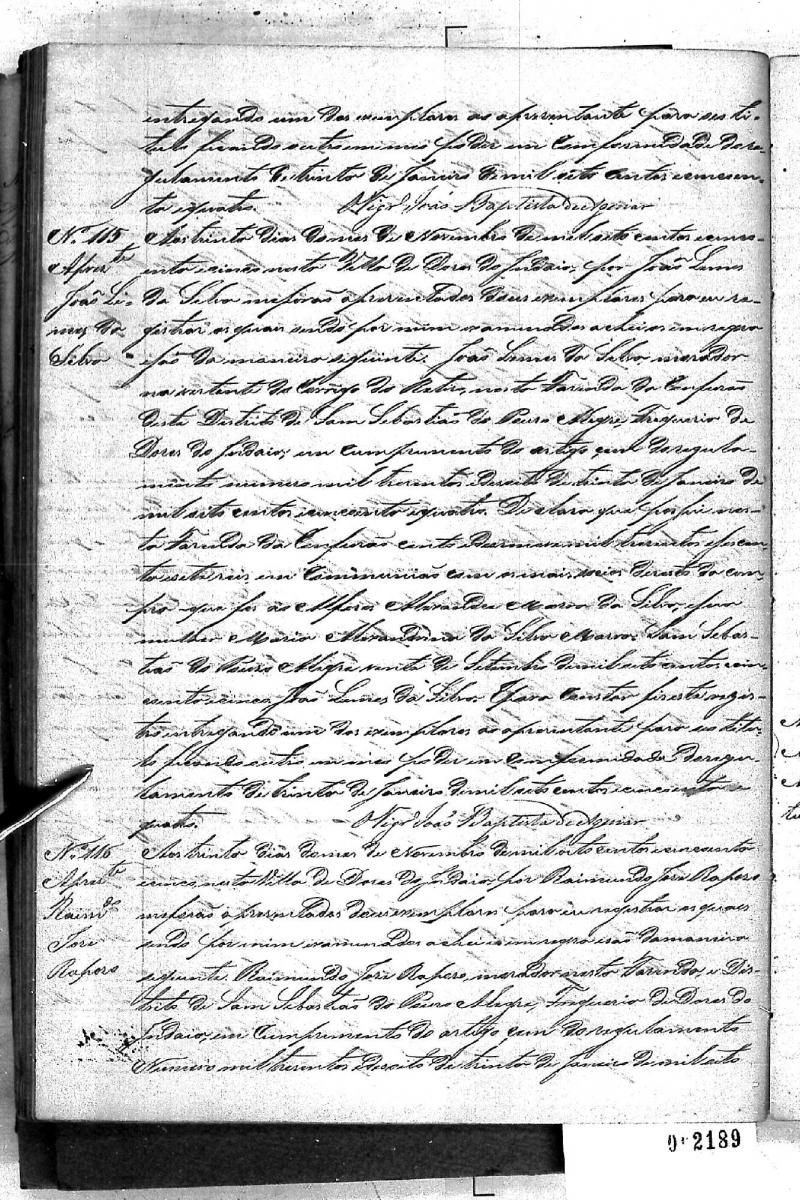 entregando um dos exemplares ao apresentante para seu ti-
tulo ficando outro em meu poder em Comformidade do re-
gulamento de trinta de Janeiro de mil oito centos e cincoen-
ta e quatro. Vigrº João Baptista de
Nº 115
Apresᵗᵉ
João Le-
mes da
Silva
Aos trinta dias do mes de Novembro de mil oito centos e cinco-
enta e cinco nesta Villa de Dores do Indaia, por João Lemes
da Silva me forão apresentados dous exemplares para eu re-
gistrar os quais sendo por mim examinados achei os em regra
e são da maneira seguinte. João Lemes da Silva morador
na vertente do Corrigo do nesta Fazenda da
deste Distrito de Sam Sebastião do Pouso Alegre Freguezia de
Dores do Indaia, em cumprimento do artigo cem do regula-
mento numero mil trezentos e dezoito de trinta de Janeiro de
mil oito centos e cincoenta e quatro. Declara que possue nes-
ta Fazenda da cento e mil trezentos e secen-
ta e sete reis, em Communião com os mais socios de resto da com-
pra que fes ao Alferes Alexandre Marra da Silva, e sua
mulher Maria Alexandrina da Silva Marra. Sam Sebas-
tião do Pouso Alegre vinte de Setembro de mil oito centos e cin-
coenta e cinco, João Lemes da Silva. E para constar fis este regis-
tro entregando um dos exemplares ao apresentante para seu titu-
lo ficando outro em meu poder em comformidade do regu-
lamento de trinta de Janeiro de mil oito centos e cincoenta e
quatro. Vigrº João Baptista de
Nº 116
Apresᵗᵉ
Raimᵈᵒ
Jose
Raposo
Aos trinta dias do mes de Novembro de mil oito centos e cincoenta
e cinco, nesta Villa de Dores do Indaia, por Raimundo Jose Raposo
me forão apresentados dous exemplares para eu registrar os quaes
sendo por mim examinados achei os em regra e são da maneira
seguinte. Raimundo Jose Raposo, morador nesta Fazenda, e Dis-
trito de Sam Sebastião do Pouso Alegre, Freguezia de Dores do
Indaia, em Cumprimento do artigo cem do regulamento
Numero mil trezentos e dezoito de trinta de Janeiro de mil oito
0 2189